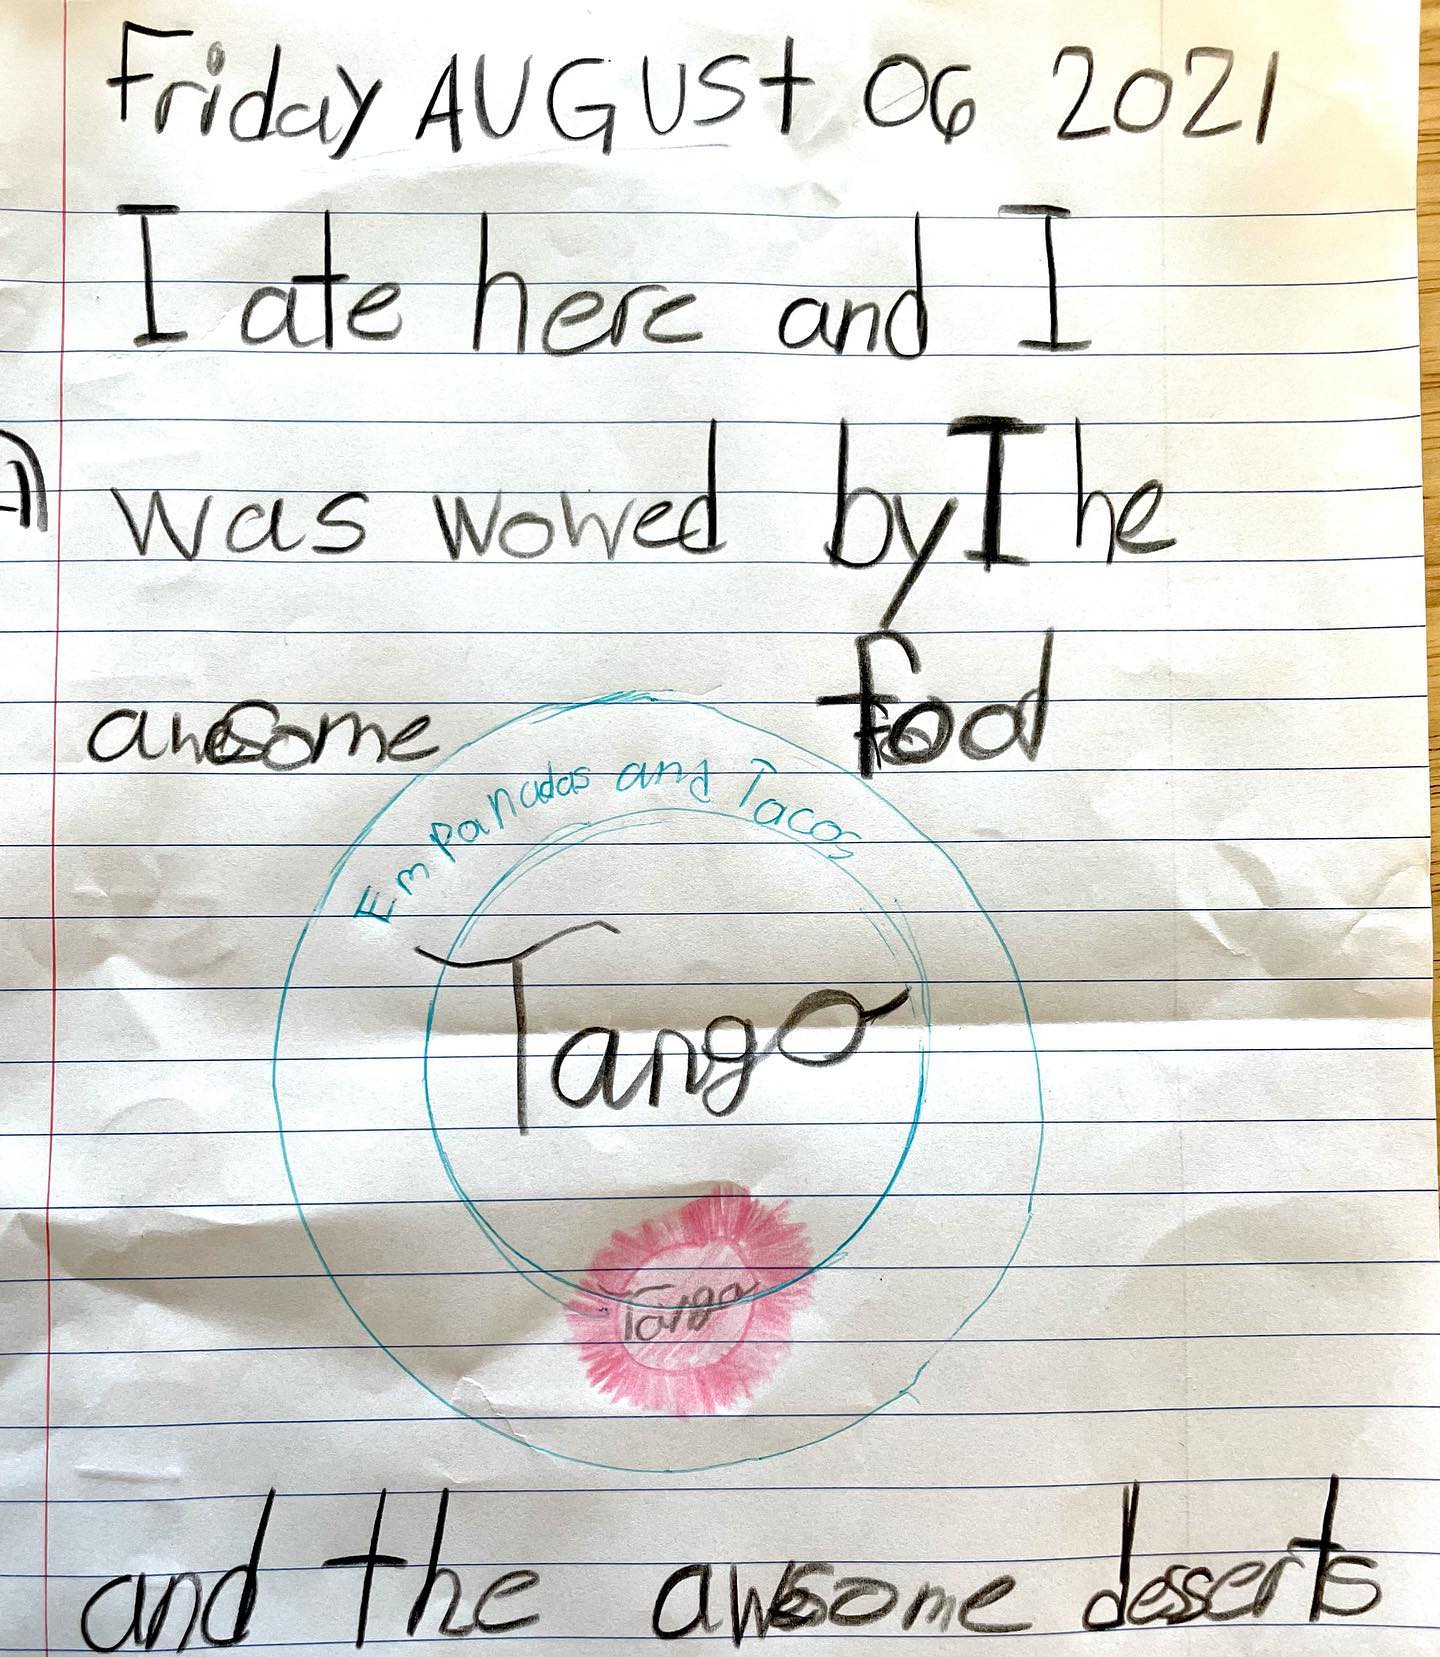 Friday AUGUSt 06 2021
I ate here and I
was wowed by The
awesome food
Empanadas and Tacos
Tango
Tango
and the awsome desserts